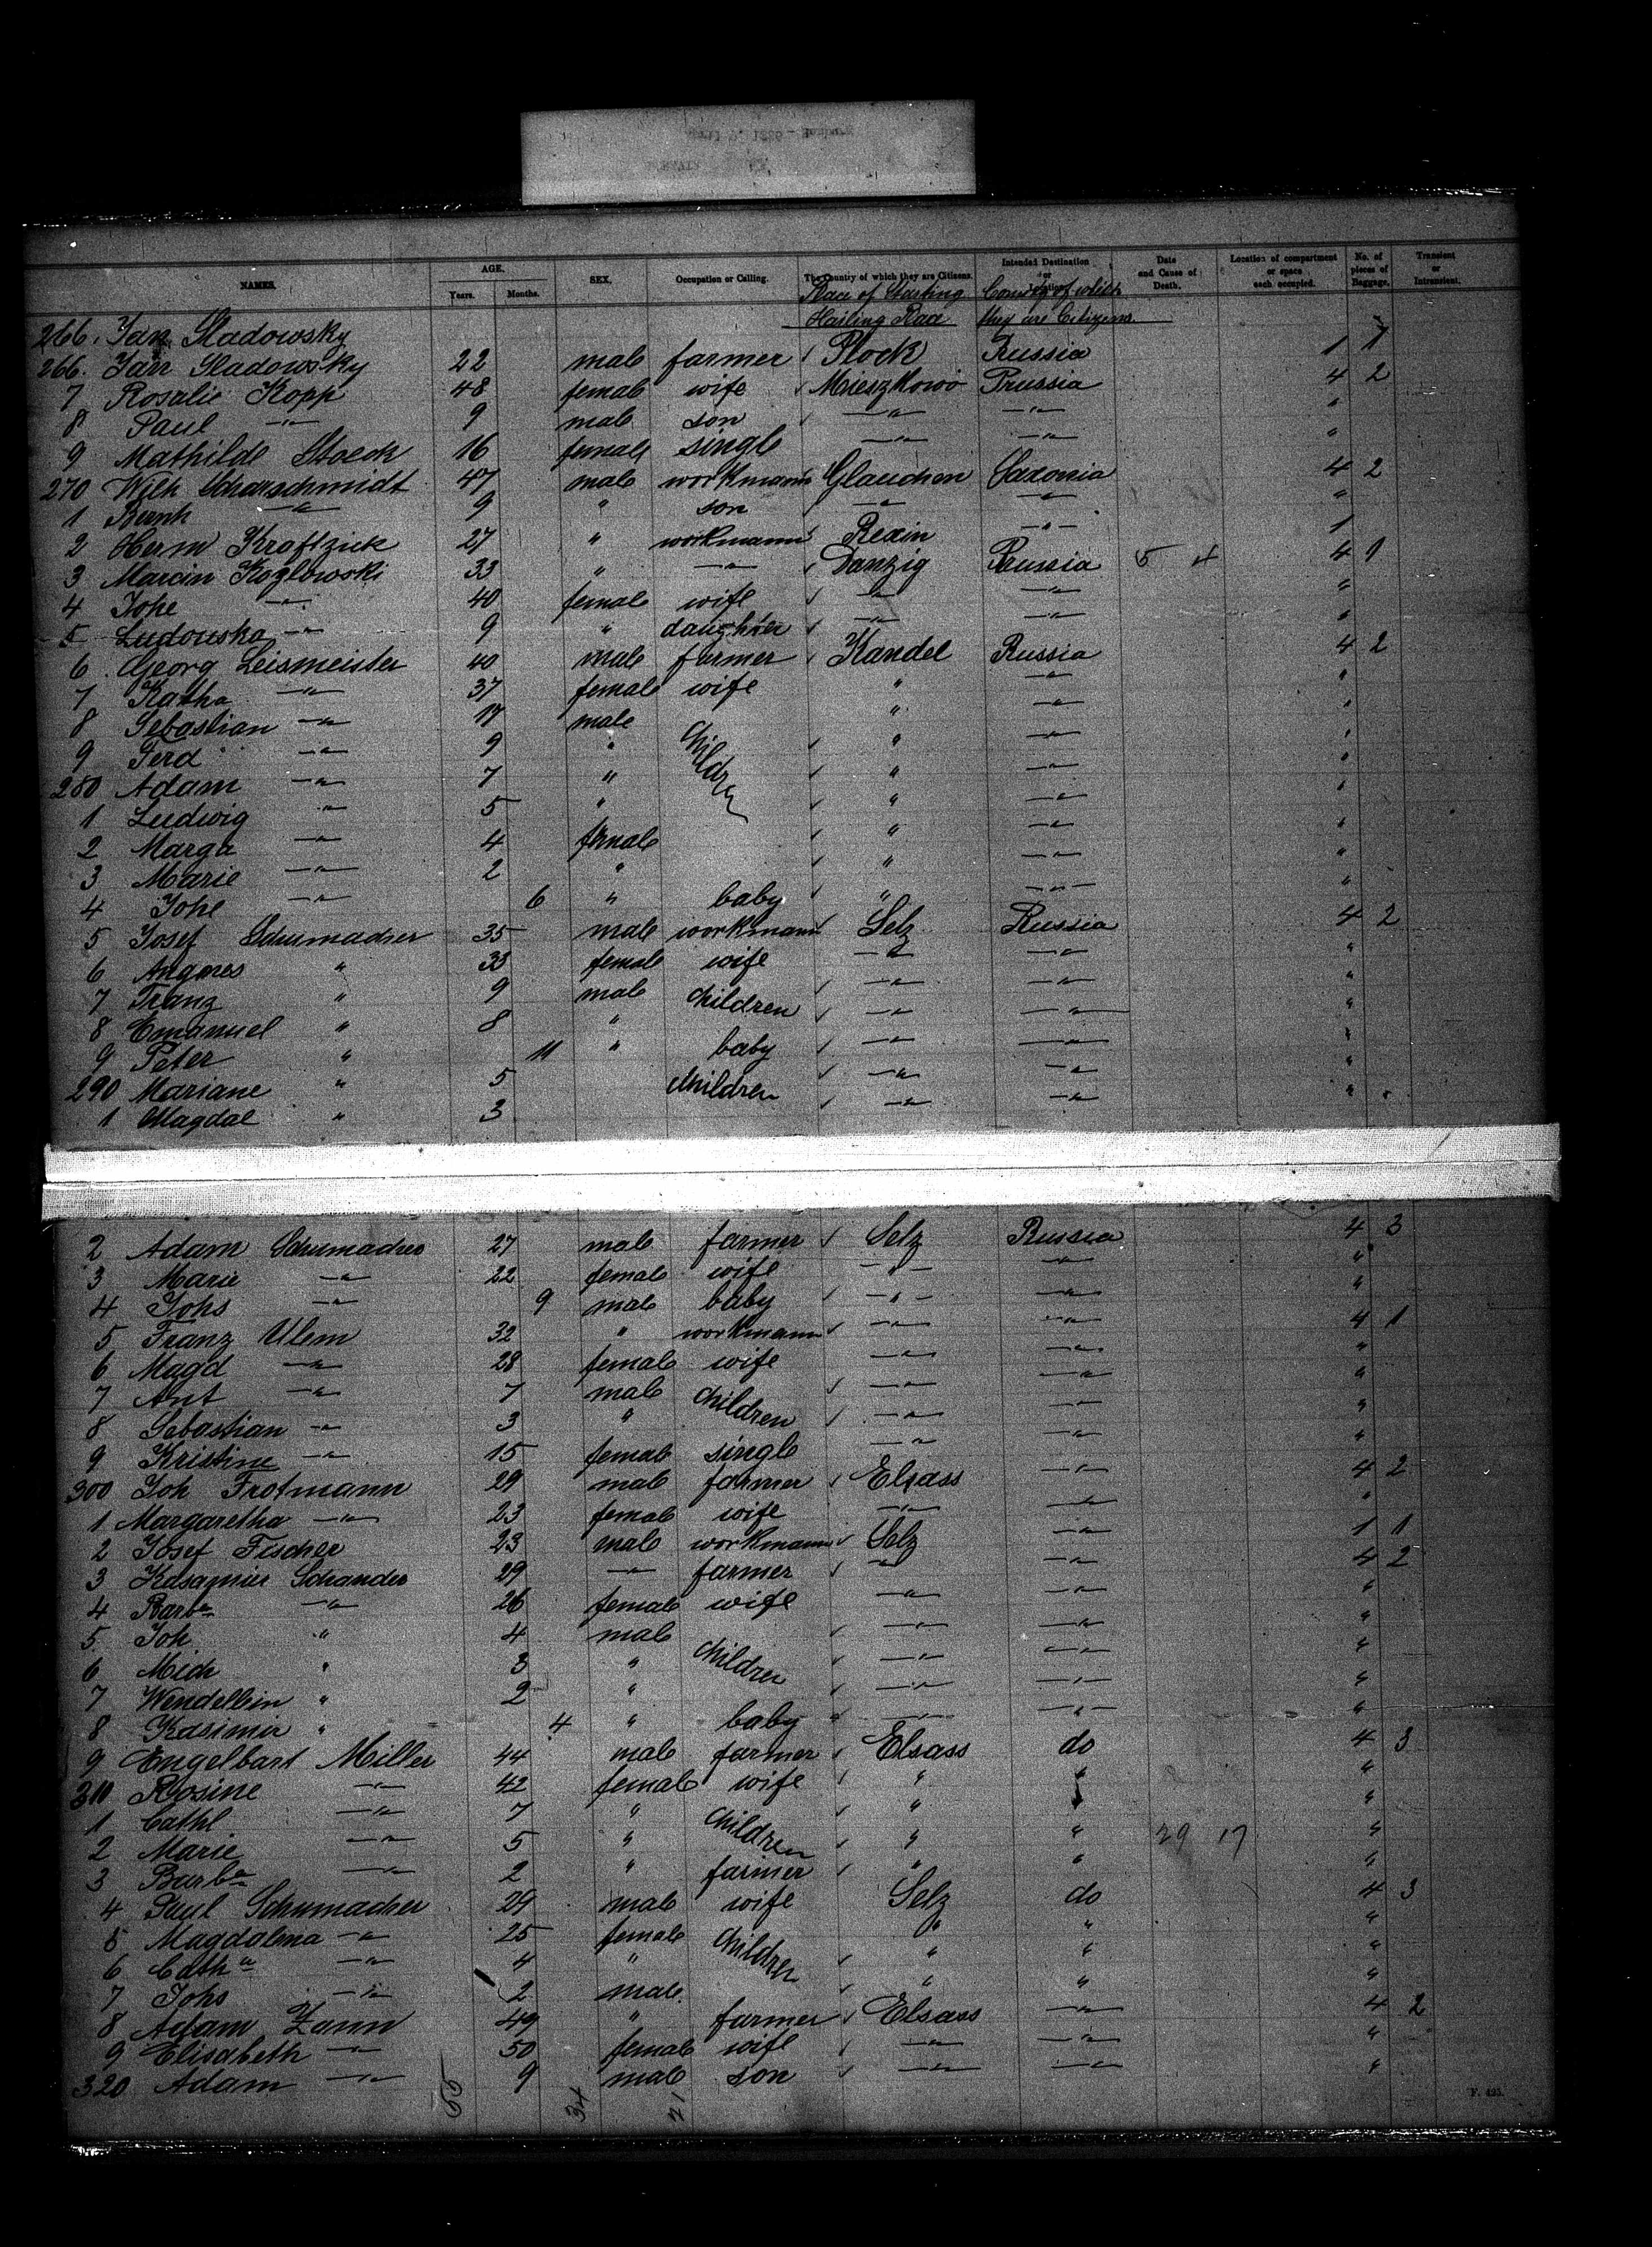 NAMES. AGE. Years. Months. SEX. Occupation or Calling. The Country of which they are Citizens. Intended Destination or Location. Date and Cause of Death. Location of compartment or space each occupied. No. of pieces of Baggage. Transient or Intransient.
Place of Starting Country of which
Hailing Place they are Citizens
266. Jan Sladowsky
266. Jan Sladowsky 22 male farmer Plock Russia 1 1
7 Rosalie Kopp 48 female wife Mieszkowo Prussia 4 2
8 Paul -"- 9 male son -"- -"- "
9 Mathilde Stoeck 16 female single -"- -"- "
270 Wilh Scharschmidt 47 male workmann Glauchau Saxonia 4 2
1 Bernh -"- 9 " son -"- -"- "
2 Herm Kraftzick 27 " workmann Rexin -"- 1
3 Marcin Kozlowski 33 " -"- Danzig Prussia 5 4 4 1
4 Johe -"- 40 female wife -"- -"- "
5 Ludouska -"- 9 " daughter -"- -"- "
6 Georg Leismeister 40 male farmer Kandel Russia 4 2
7 Katha -"- 37 female wife " -"- "
8 Sebastian -"- 17 male " -"- "
9 Ferd -"- 9 " children " -"- "
280 Adam -"- 7 " " -"- "
1 Ludwig -"- 5 " " -"- "
2 Marga -"- 4 female " -"- "
3 Marie -"- 2 " " -"- "
4 Johe -"- 6 " baby " -"- "
5 Josef Schumacher 35 male workmann Selz Russia 4 2
6 Angnes " 33 female wife -"- -"- "
7 Franz " 9 male children -"- -"- "
8 Emanuel " 8 " -"- -"- "
9 Peter " 11 " baby -"- -"- "
290 Mariane " 5 children -"- -"- "
1 Magdal " 3 -"- -"- "
2 Adam Schumacher 27 male farmer Selz Russia 4 3
3 Marie -"- 22 female wife -"- -"- "
4 Johs -"- 9 male baby -"- -"- "
5 Franz Ulem 32 " workmann -"- -"- 4 1
6 Magd -"- 28 female wife -"- -"- "
7 Ant -"- 7 male children -"- -"- "
8 Sebastian -"- 3 " -"- -"- "
9 Kristine -"- 15 female single -"- -"- "
300 Joh Trotmann 29 male farmer Elsass -"- 4 2
1 Margaretha -"- 23 female wife -"- -"- "
2 Josef Fischer 23 male workmann Selz -"- 1 1
3 Schander 29 -"- farmer -"- -"- 4 2
4 Barba -"- 26 female wife -"- -"- "
5 Joh " 4 male -"- -"- "
6 Mich " 3 " children -"- -"- "
7 Wendellin " 2 " -"- -"- "
8 Kasimir " 4 " baby -"- -"- "
9 Engelbart Miller 44 male farmer Elsass do 4 3
310 Rosine -"- 42 female wife " " "
1 Cathl -"- 7 " children " " "
2 Marie -"- 5 " " " 29 17 "
3 Barba -"- 2 " farmer " " "
4 Paul Schumacher 29 male wife Selz do 4 3
5 Magdalena -"- 25 female " " "
6 Catha -"- 4 " children " " "
7 Johs -"- 2 male " " "
8 Adam Zann 49 " farmer Elsass -"- 4 2
9 Elisabeth -"- 50 female wife -"- -"- "
320 Adam -"- 9 male son -"- -"- "
34 21
F. 425.